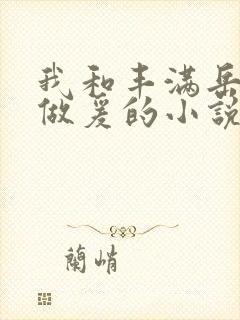 我和丰满岳
做爰的小說
蘭峭